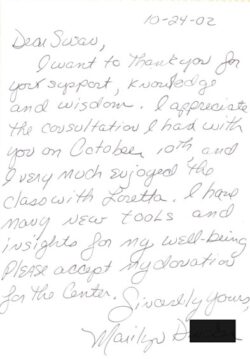 10-24-02
Dear Susan,
I want to thank you for
your support, knowledge
and wisdom. I appreciate
the consultation I had with
you on October 10th and
I very much enjoyed the
class with Loretta. I have
many new tools and
insights for my well-being
Please accept my donation
for the Center.
Sincerely yours,
Marilyn